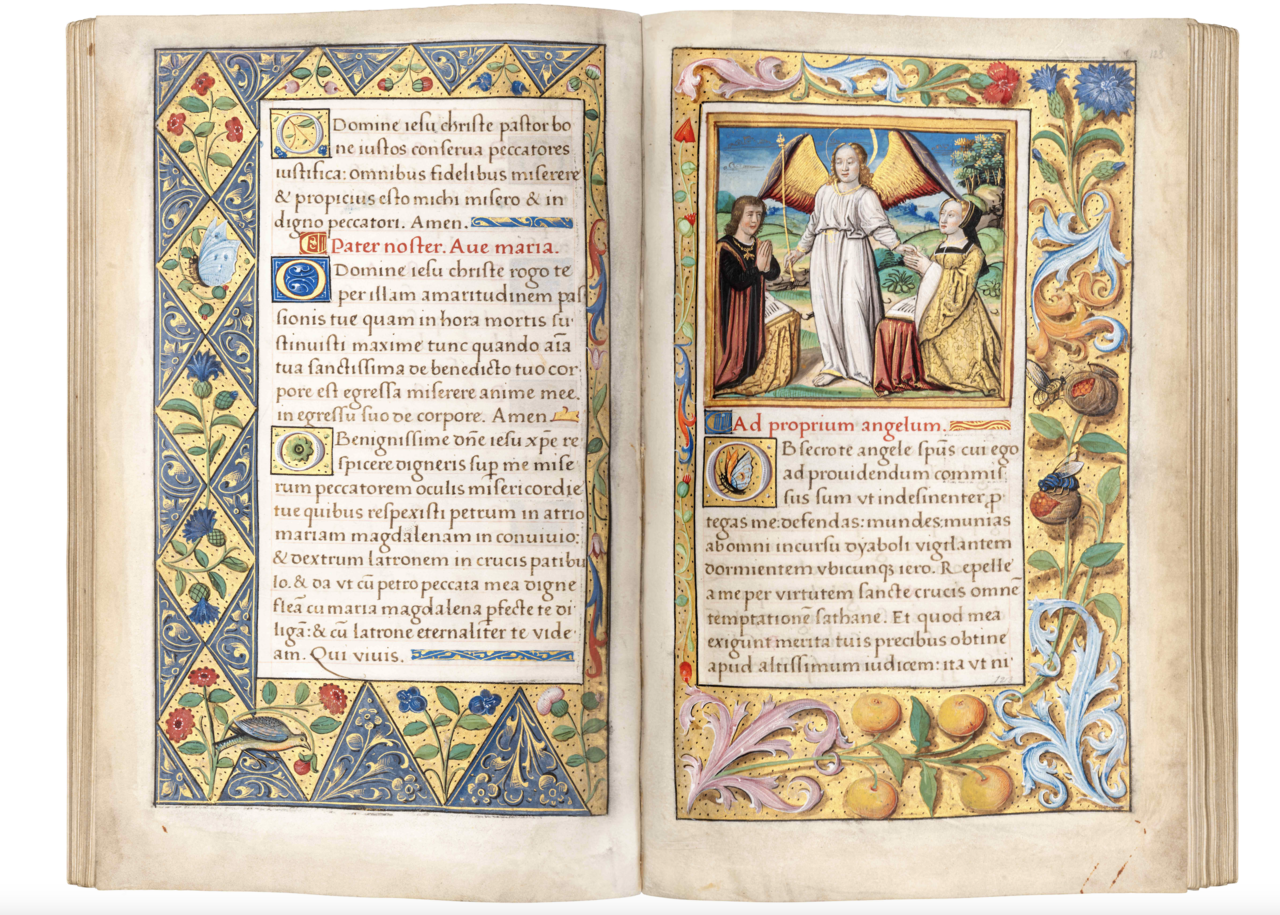 O Domine iesu christe pastor bo
ne iustos conserua peccatores
iustifica: omnibus fidelibus miserere
& propicius esto michi misero & in
digno peccatori. Amen.
Pater noster. Aue maria.
O Domine iesu christe rogo te
per illam amaritudinem pas
sionis tue quam in hora mortis su
stinuisti maxime tunc quando aĩa
tua sanctissima de benedicto tuo cor
pore est egressa miserere anime mee.
in egressu suo de corpore. Amen.
O Benignissime dñe iesu xp̃e re
spicere digneris sup̱ me mise
rum peccatorem oculis misericordie
tue quibus respexisti petrum in atrio
mariam magdalenam in conuiuio:
& dextrum latronem in crucis patibu
lo. & da vt cũ petro peccata mea digne
fleã cu maria magdalena p̱fecte te di
ligã: & cũ latrone eternaliter te vide
am. Qui viuis.
Ad proprium angelum.
OBsecro te angele sp̃us cui ego
ad prouidendum commis
sus sum vt indesinenter p̱
tegas me: defendas: mundes: munias
ab omni incursu dyaboli vigilantem
dormientem vbicunqꝫ iero. Repelle
a me per virtutem sancte crucis omnẽ
temptationẽ sathane. Et quod mea
exigunt merita tuis precibus obtine
apud altissimum iudicem: ita vt ni